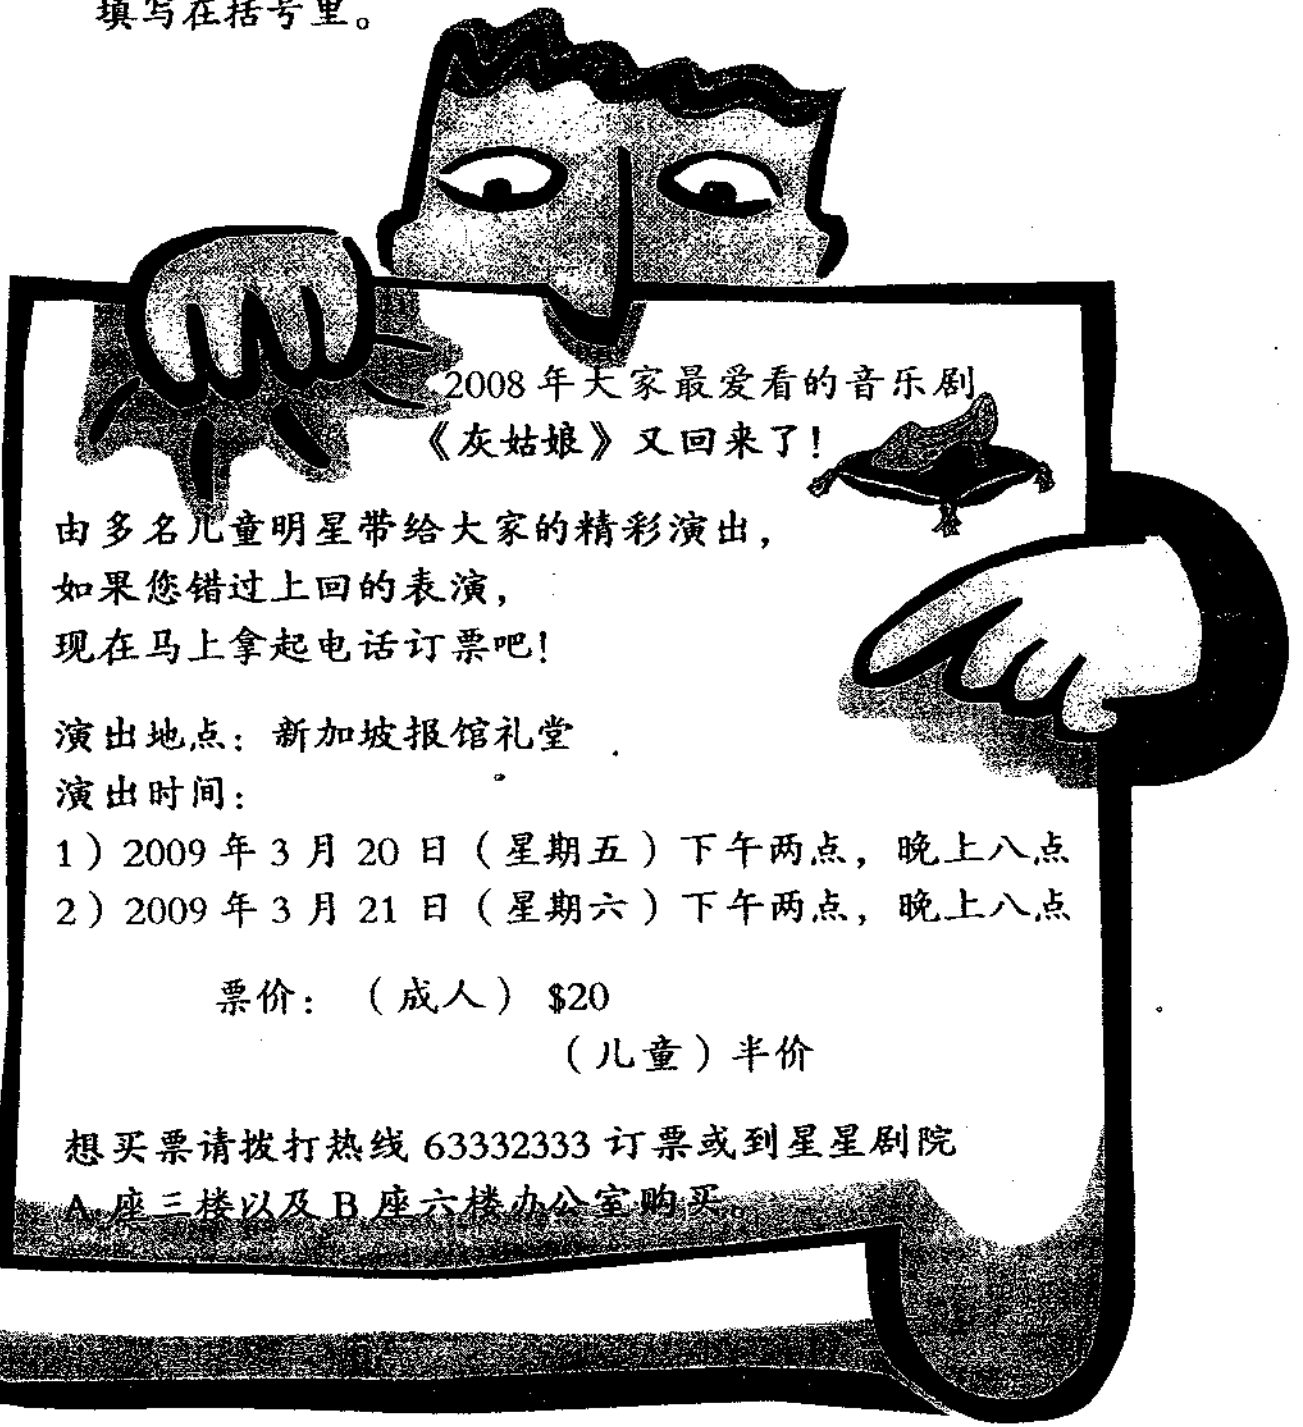 填写在括号里。
2008 年大家最爱看的音乐剧
《灰姑娘》又回来了！
由多名儿童明星带给大家的精彩演出，
如果您错过上回的表演，
现在马上拿起电话订票吧！
演出地点：新加坡报馆礼堂
演出时间：
1）2009 年 3 月 20 日（星期五）下午两点，晚上八点
2）2009 年 3 月 21 日（星期六）下午两点，晚上八点
票价：（成人）$20
（儿童）半价
想买票请拨打热线 63332333 订票或到星星剧院
A 座三楼以及 B 座六楼办公室购买。